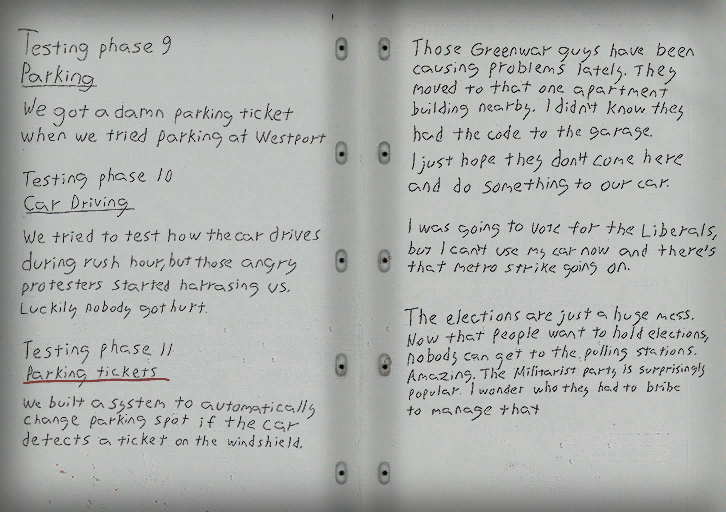 Testing phase 9
Parking
We got a damn parking ticket
when we tried parking at Westport
Testing phase 10
Car Driving
We tried to test how the car drives
during rush hour, but those angry
protesters started harrasing us.
Luckily nobody got hurt.
Testing phase 11
Parking tickets
We built a system to automatically
change parking spot if the car
detects a ticket on the windshield.
Those Greenwar guys have been
causing problems lately. They
moved to that one apartment
building nearby. I didn't know they
had the code to the garage.
I just hope they don't come here
and do something to our car.
I was going to vote for the Liberals,
but I can't use my car now and there's
that metro strike going on.
The elections are just a huge mess.
Now that people want to hold elections,
nobody can get to the polling stations.
Amazing. The Militarist party is surprisingly
popular. I wonder who they had to bribe
to manage that